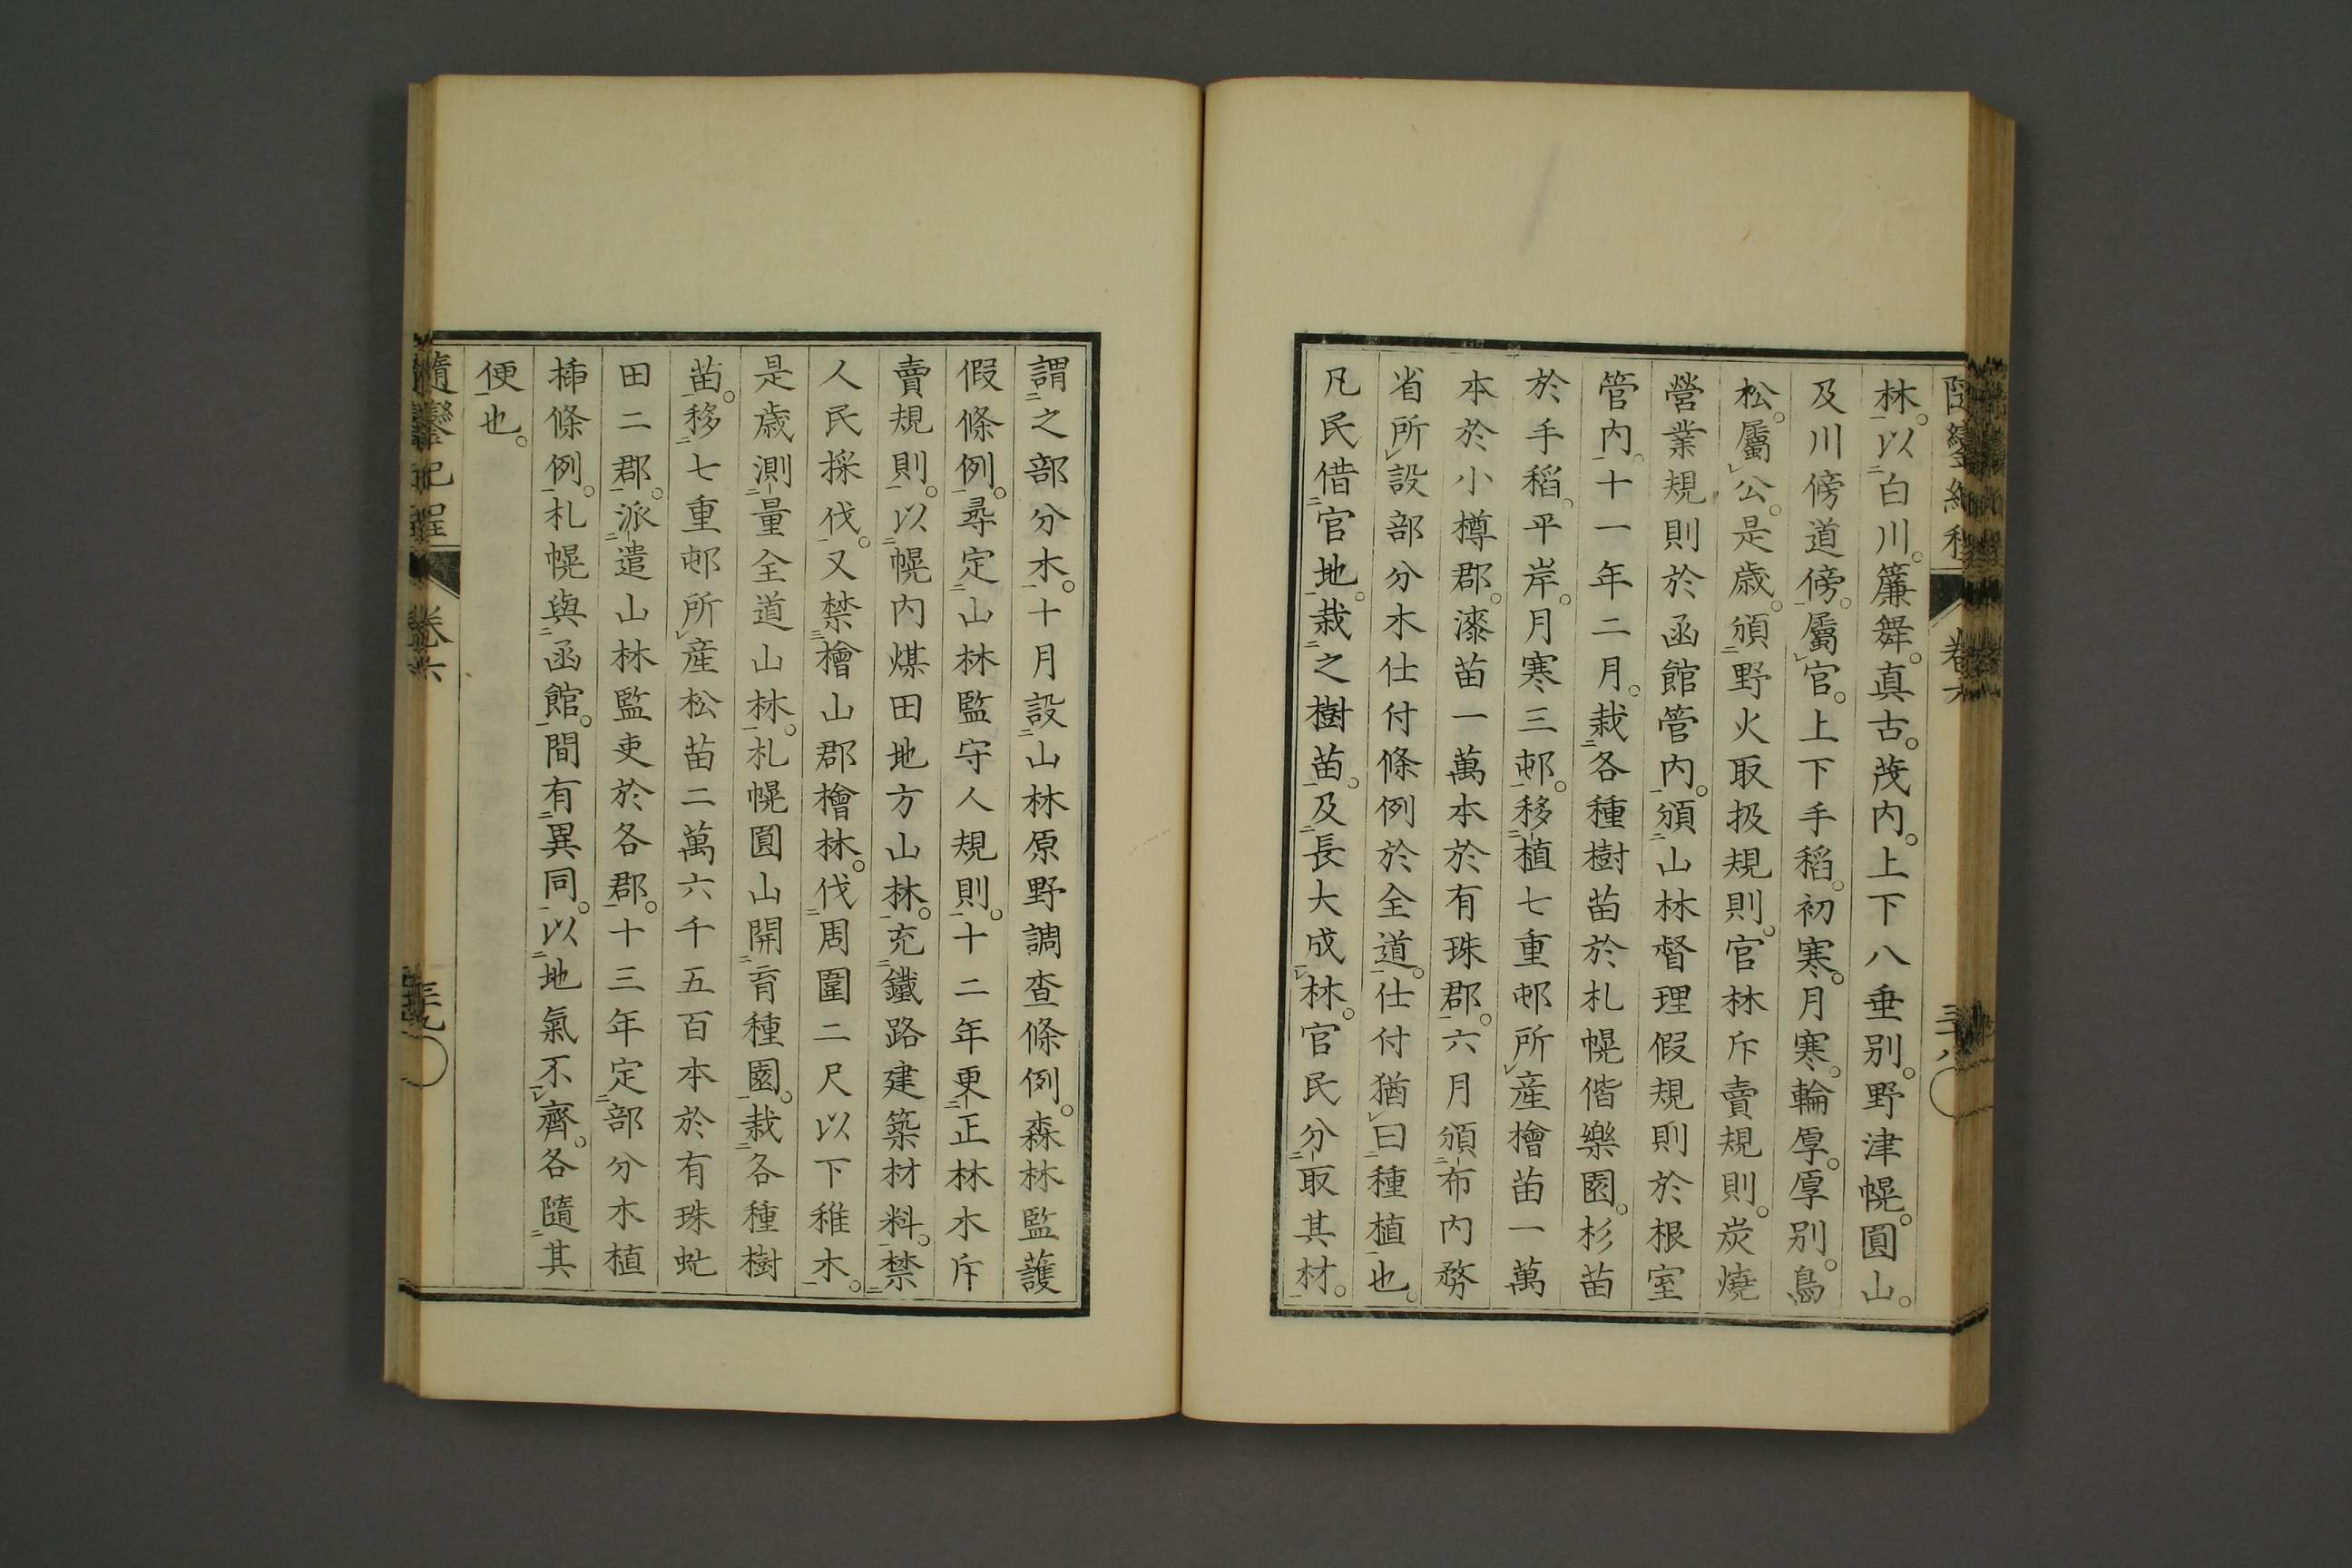 林。以白川。簾舞。真古。茂内。上下八垂別。野津幌。圓山。
及川傍道傍。屬官。上下手稻。初寒。月寒。輪厚。厚別。島
松。屬公。是歳。頒野火取扱規則。官林斥賣規則。炭燒
營業規則於函館管内。頒山林督理假規則於根室
管内。十一年二月。栽各種樹苗於札幌偕樂園。杉苗
於手稻。平岸。月寒三邨。移植七重邨所産檜苗一萬
本於小樽郡。漆苗一萬本於有珠郡。六月頒布内務
省所設部分木仕付條例於全道。仕付猶曰種植也。
凡民借官地。栽之樹苗。及長大成林。官民分取其材。
謂之部分木。十月設山林原野調查條例。森林監護
假條例。尋定山林監守人規則。十二年更正林木斥
賣規則。以幌内煤田地方山林。充鐵路建築材料。禁
人民採伐。又禁檜山郡檜林。伐周圍二尺以下稚木。
是歳測量全道山林。札幌圓山開育種園。栽各種樹
苗。移七重邨所産松苗二萬六千五百本於有珠虻
田二郡。派遣山林監吏於各郡。十三年定部分木植
挿條例。札幌與函館。間有異同。以地氣不齊。各隨其
便也。
隨鑾紀程
卷六
三十九